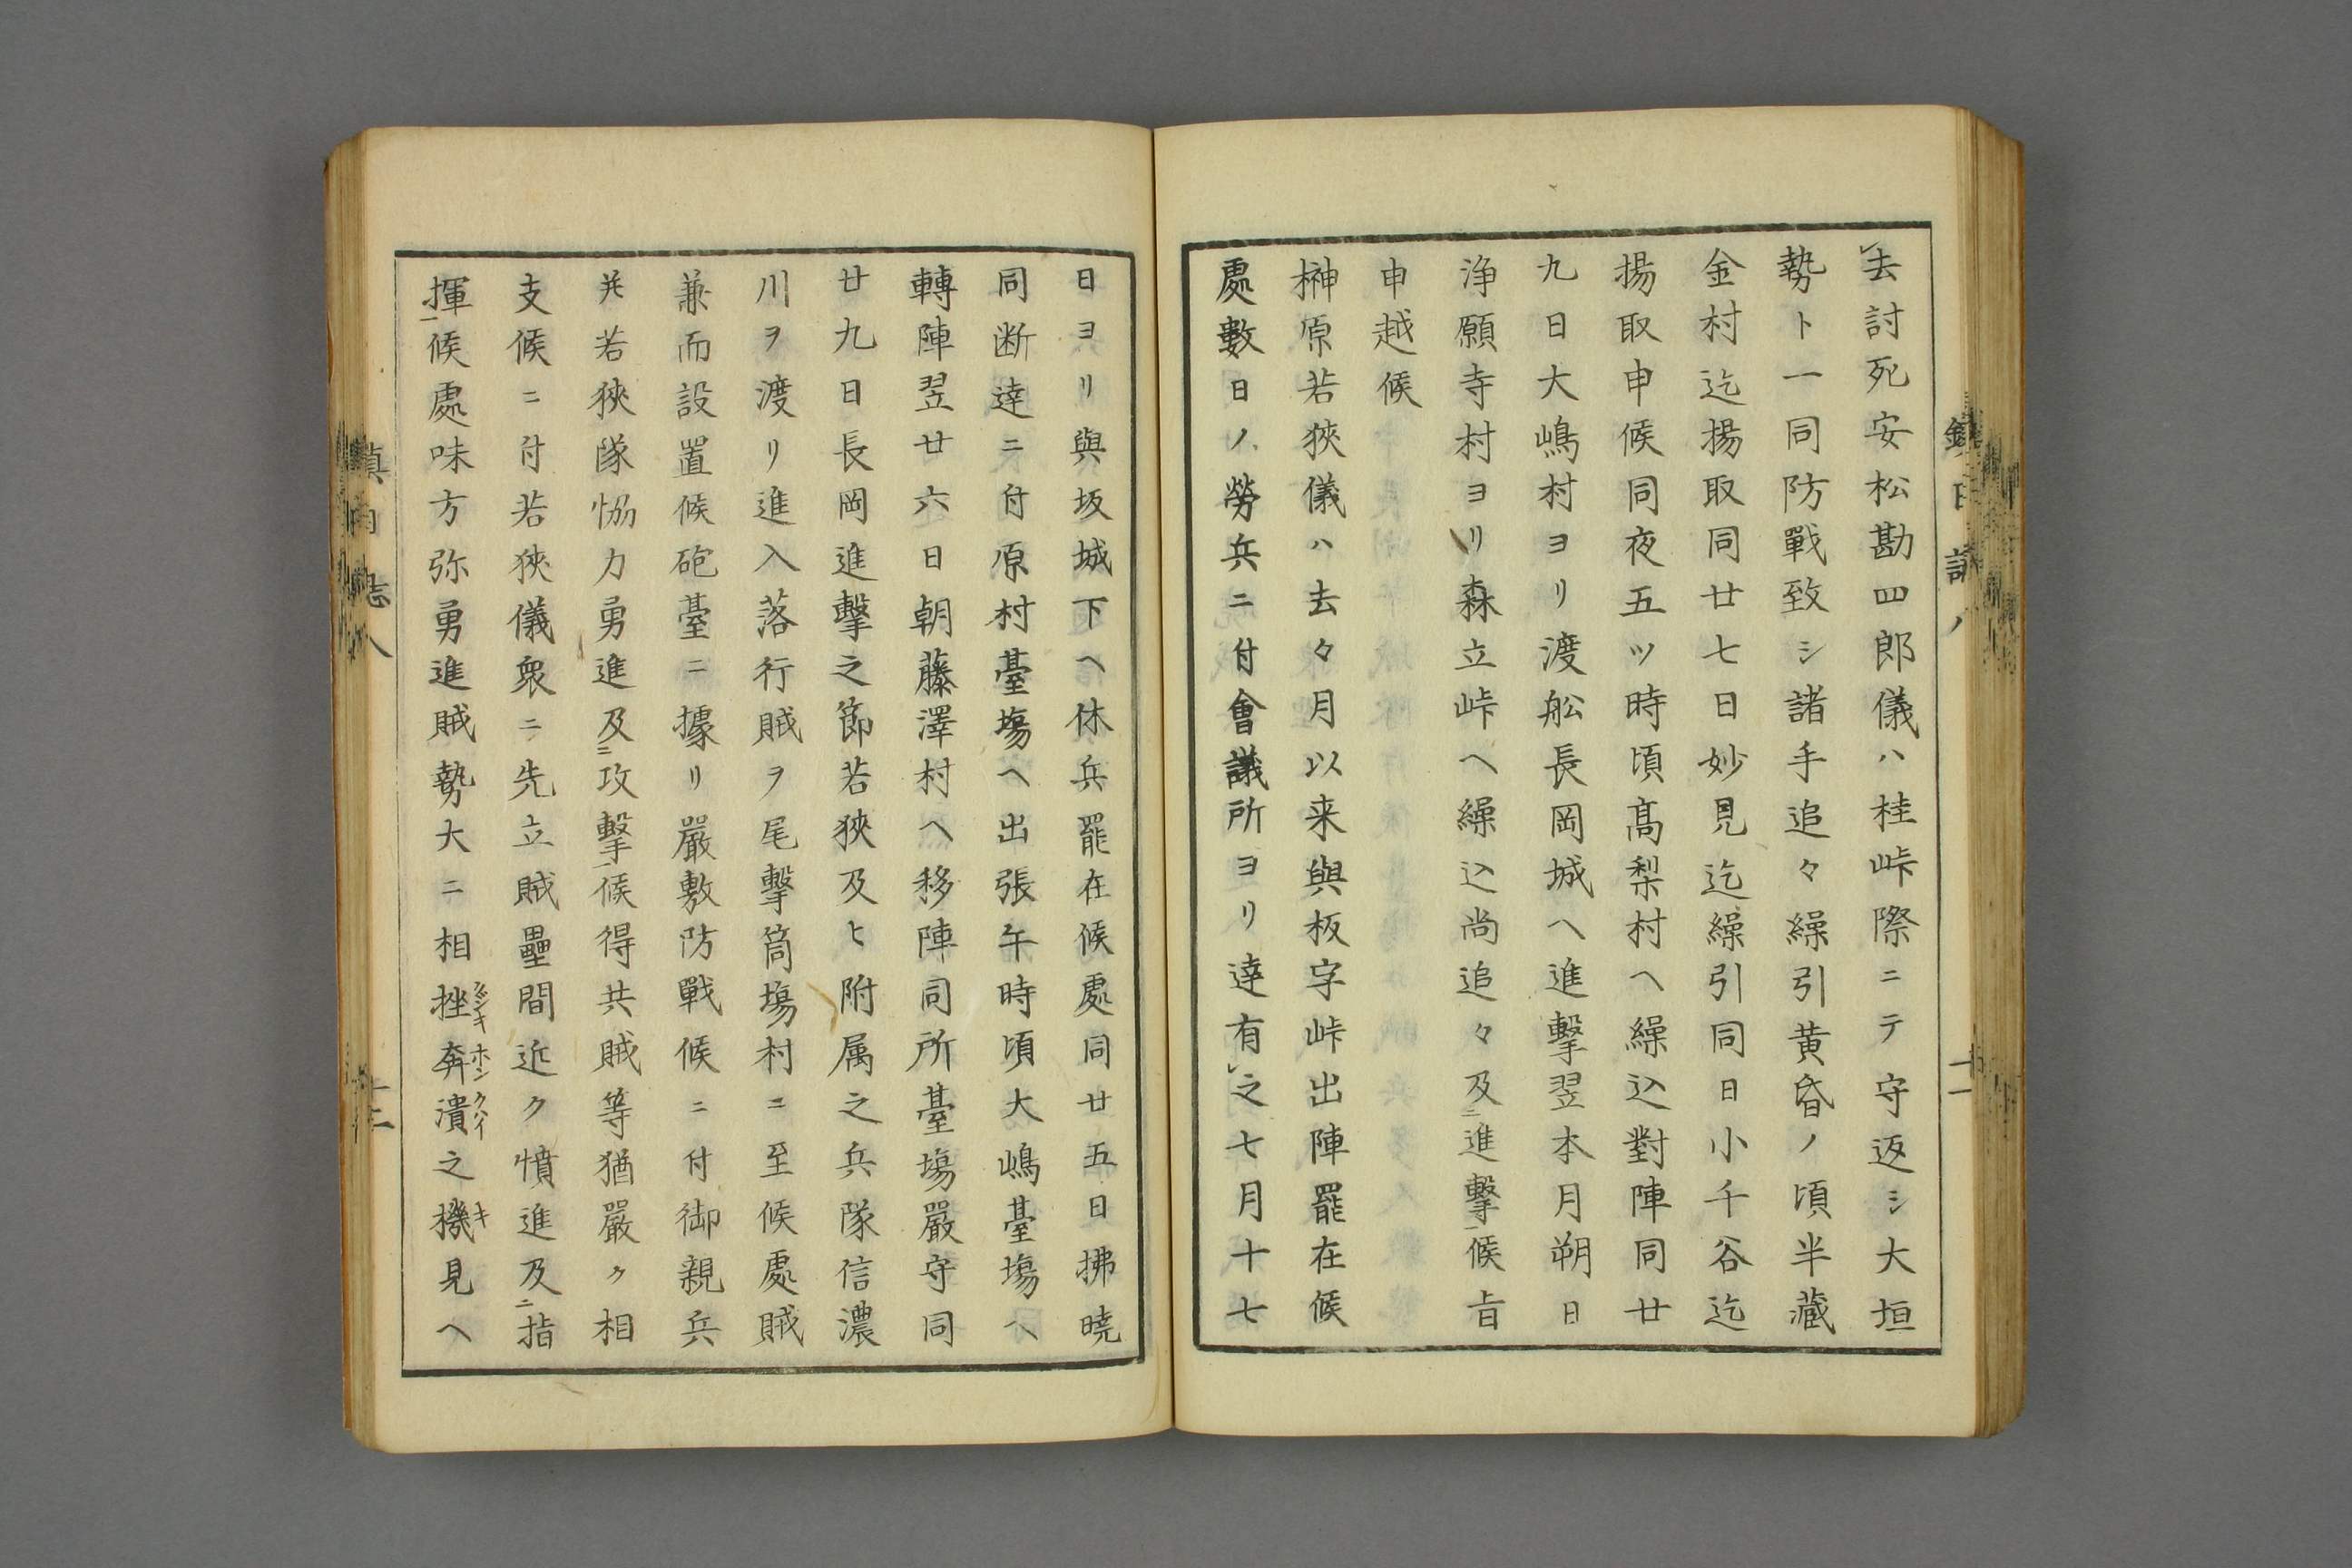 去討死安松勘四郎儀ハ桂峠際ニテ守返シ大垣
勢ト一同防戰致シ諸手追々繰引黄昏ノ頃半藏
金村迄揚取同廿七日妙見迄繰引同日小千谷迄
揚取申候同夜五ツ時頃髙梨村ヘ繰込對陣同廿
九日大嶋村ヨリ渡舩長岡城ヘ進擊翌本月朔日
浄願寺村ヨリ森立峠ヘ繰込尚追々及ニ進擊一候旨
申越候
榊原若狹儀ハ去々月以来與板字峠出陣罷在候
處數日ノ勞兵ニ付會議所ヨリ達有之七月十七
日ヨリ與坂城下ヘ休兵罷在候處同廿五日拂曉
同断達ニ付原村臺塲ヘ出張午時頃大嶋臺塲ヘ
轉陣翌廿六日朝藤澤村ヘ移陣同所臺塲嚴守同
廿九日長岡進擊之節若狹及ヒ附属之兵隊信濃
川ヲ渡リ進入落行賊ヲ尾擊筒塲村ニ至候處賊
兼而設置候砲臺ニ據リ嚴敷防戰候ニ付御親兵
幷若狹隊恊力勇進及ニ攻擊一候得共賊等猶嚴ク相
支候ニ付若狹儀衆ニ先立賊壘間近ク憤進及ニ指
揮一候處味方弥勇進賊勢大ニ相挫奔潰之機見ヘ
十一